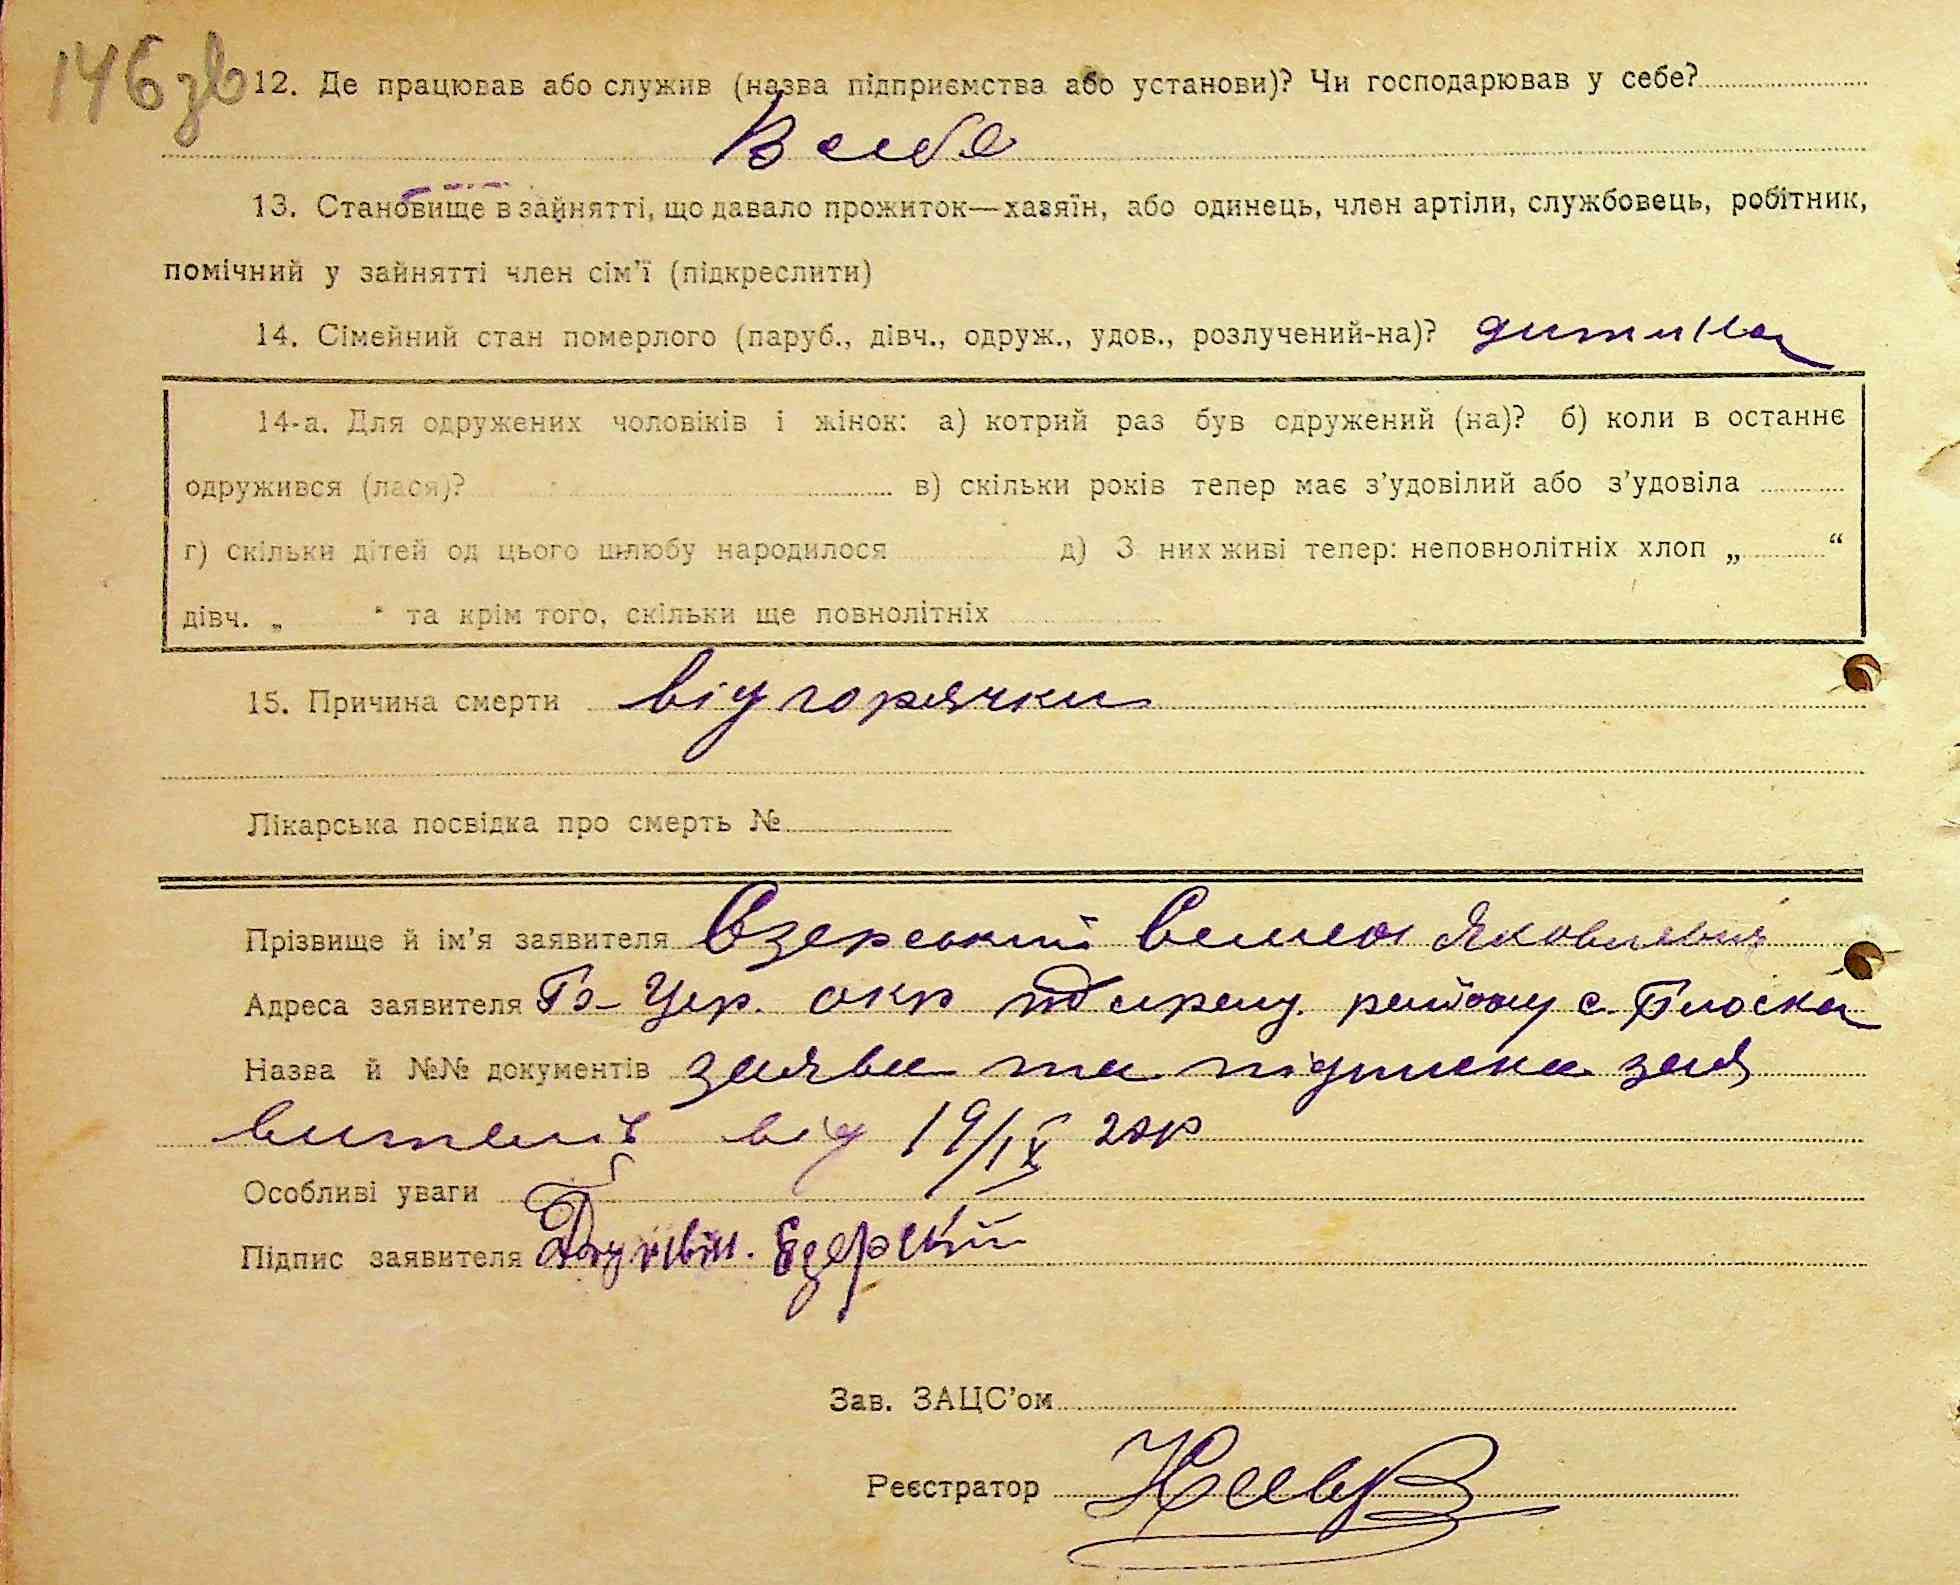 146 зв
12. Де працював або служив (назва підприємства або установи)? Чи господарював у себе?
В себе
13. Становище в зайнятті, що давало прожиток—хазяїн, або одинець, член артіли, службовець, робітник,
помічний у зайнятті член сім’ї (підкреслити)
14. Сімейний стан померлого (паруб., дівч., одруж., удов., розлучений-на)? дитина
14-а. Для одружених чоловіків і жінок: а) котрий раз був одружений (на)? б) коли в останнє
одружився (лася)? в) скільки років тепер має з’удовілий або з’удовіла
г) скільки дітей од цього шлюбу народилося д) З них живі тепер: неповнолітніх хлоп „ “
дівч. „ “ та крім того, скільки ще повнолітніх
15. Причина смерти від горячки
Лікарська посвідка про смерть №
Прізвище й ім’я заявителя Озерський Семен Яковлевич
Адреса заявителя Б-Цер. окр району с. Плоска
Назва й №№ документів заява та підписка зая
вителів від 19/IX 28р
Особливі уваги
Підпис заявителя Озерский
Зав. ЗАЦС’ом
Реєстратор